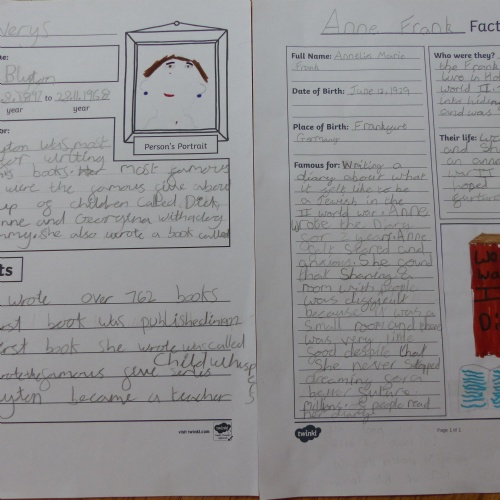 verys
te:
Blyton
8.1897 to 28.11.1968
year year
Person's Portrait
or:
yton was most
for writing
books. Her most famous
were the famous give about
up of children called Dick,
nne and Georgina with a dog
mmy. She also wrote a book called
ts
wrote over 762 books
book was published in
irst book she wrote was called
Child whisp
famous give series
lyton became a teacher
visit twinkl.com
Anne Frank Fact
Full Name: Annelise Marie
Frank
Date of Birth: June 12, 1929
Place of Birth: Frankfurt
Germany
Famous for: Writing a
diary about what
it felt like to be
a Jewish in the
II world war. Anne
wrote the diary
for 2 years. Anne
felt scared and
anxious. She found
that sharing a
room with people
was difficult
because it was a
small room and there
was very little
food despite that
She never stopped
dreaming for a
better future.
Millions of people read
her diary!
twinkl
Page 1 of 2
Who were they?
the Frank
live in Ho
world II
into hiding
and was
Their life:
and Sh
an anne
war II
hoped
Wo
wa
I
Di